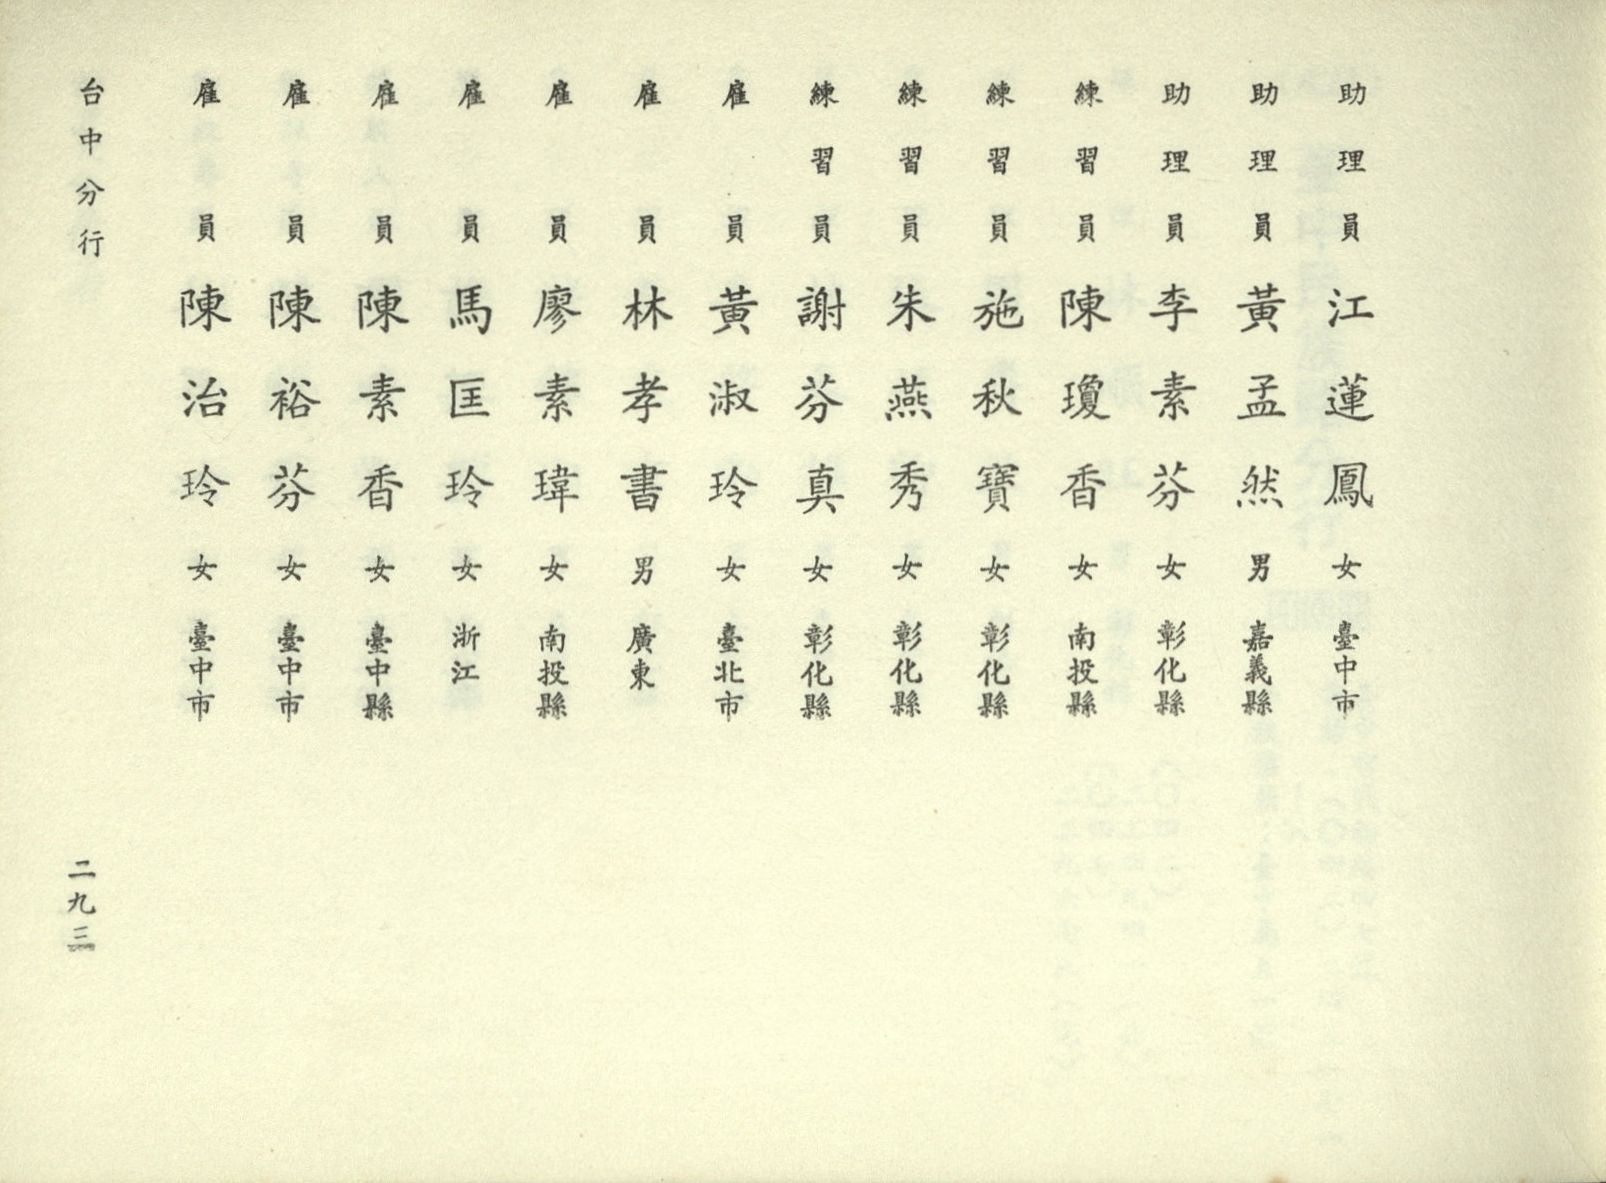 助理員 江蓮鳳 女 臺中市
助理員 黃孟然 男 嘉義縣
助理員 李素芬 女 彰化縣
練習員 陳瓊香 女 南投縣
練習員 施秋寶 女 彰化縣
練習員 朱燕秀 女 彰化縣
練習員 謝芬真 女 彰化縣
雇員 黃淑玲 女 臺北市
雇員 林孝書 男 廣東
雇員 廖素瑋 女 南投縣
雇員 馬匡玲 女 浙江
雇員 陳素香 女 臺中縣
雇員 陳裕芬 女 臺中市
雇員 陳治玲 女 臺中市
台中分行 二九三